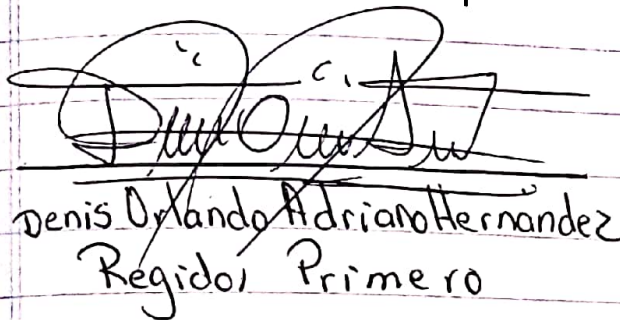 Denis Orlando Adriano Hernandez
Regidor Primero